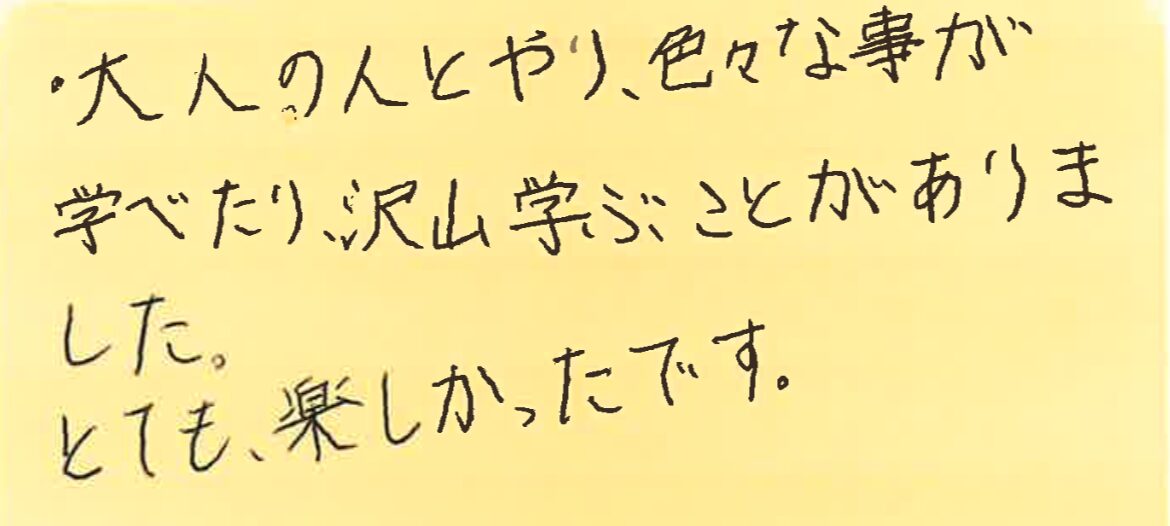 ・大人の人とやり、色々な事が
学べたり、沢山学ぶことがありま
した。
とても、楽しかったです。